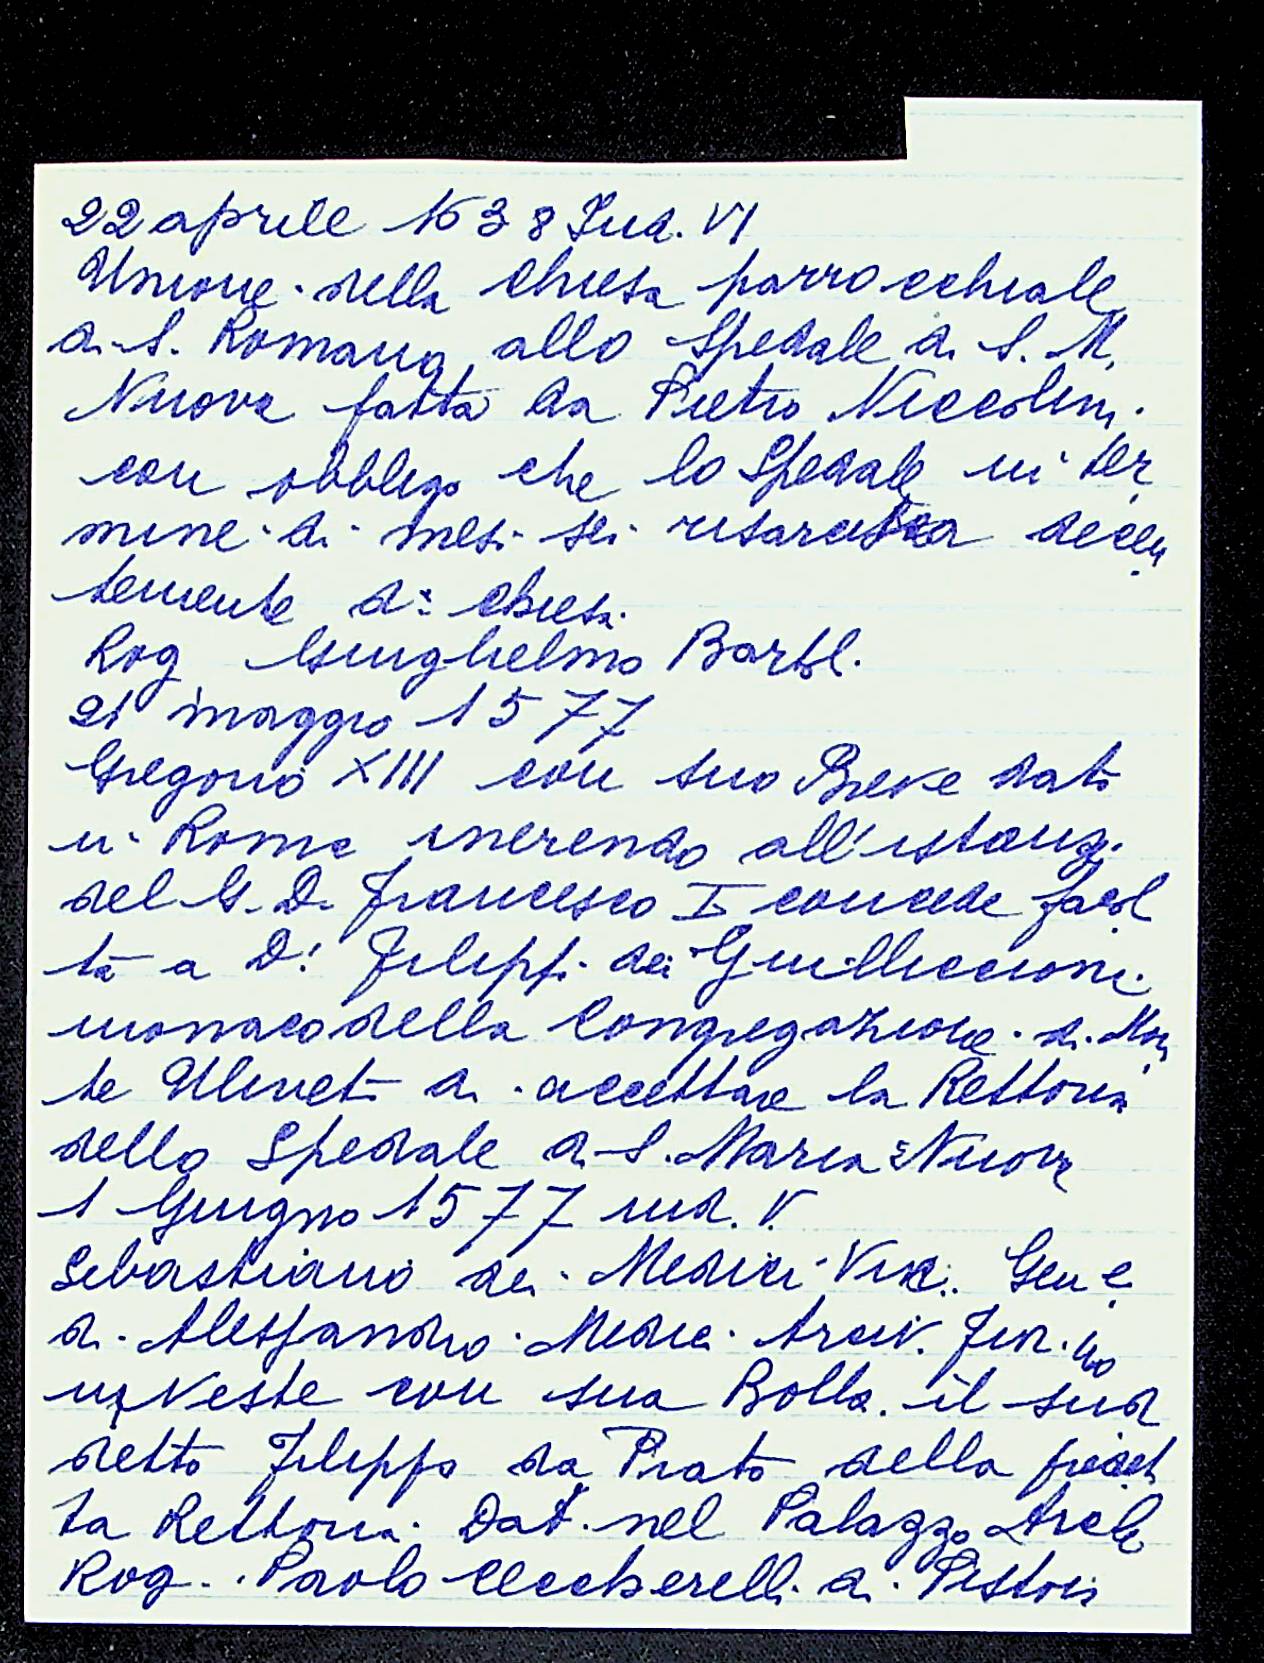 22 aprile 1638 Ind. VI
Unione della chiesa parrocchiale
di S. Romano allo Spedale di S. M.
Nuova fatta da Pietro Niccolini
con obbligo che lo Spedale in ter
mine di mesi sei risarcisca decen
temente d.a chiesa
Rog Guglielmo Bartol.
21 maggio 1577
Gregorio XIII con suo Breve dato
in Roma inerendo all'istanza
del G. D. Francesco I concede facol
tà a D. Filippo dei
monaco della Congregazione di Mon
te Uliveto di accettare la Rettoria
dello Spedale di S. Maria Nuova
1 Giugno 1577 ind. V.
Sebastiano dei Medici Vic. Gen.e
di Alessandro Medici Arciv. Fior.no
investe con sua Bolla il sud
detto Filippo da Prato della
ta Rettoria. Dat. nel Palazzo Arciv.
Rog. Paolo Ceccherelli da Pistoia